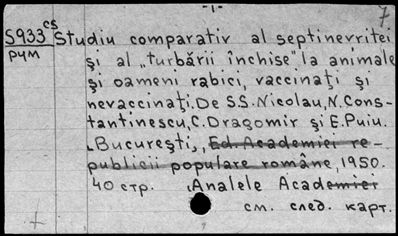 -1- 7.
S933 CS Studiu comparativ al septinevritei
рум și al „turbării închise" la animale
și oameni rabici, vaccinați și
nevaccinați. De S.S. Nicolau, N. Cons-
tantinescu, C. Dragomir și E. Puiu.
București, Ed. Academiei re-
publicii populare române, 1950.
40 стр. Analele Academiei
см. след. карт.